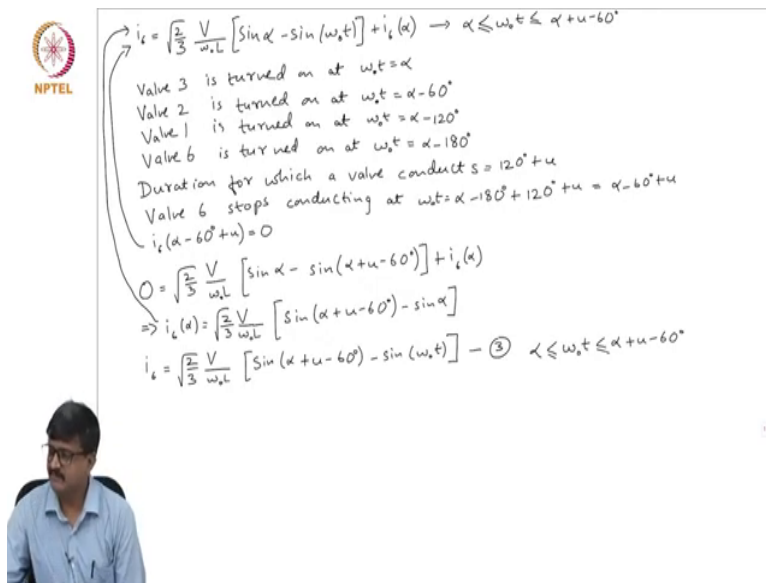 i₆ = √(2/3) V/(ω₀L) [sinα - sin(ω₀t)] + i₆(α) → α ≤ ω₀t ≤ α+u-60°
NPTEL
Valve 3 is turned on at ω₀t = α
Valve 2 is turned on at ω₀t = α-60°
Valve 1 is turned on at ω₀t = α-120°
Valve 6 is turned on at ω₀t = α-180°
Duration for which a valve conducts = 120°+u
Valve 6 stops conducting at ω₀t = α-180°+120°+u = α-60°+u
i₆(α-60°+u) = 0
0 = √(2/3) V/(ω₀L) [sinα - sin(α+u-60°)] + i₆(α)
⇒ i₆(α) = √(2/3) V/(ω₀L) [sin(α+u-60°) - sinα]
i₆ = √(2/3) V/(ω₀L) [sin(α+u-60°) - sin(ω₀t)] - ③ α ≤ ω₀t ≤ α+u-60°